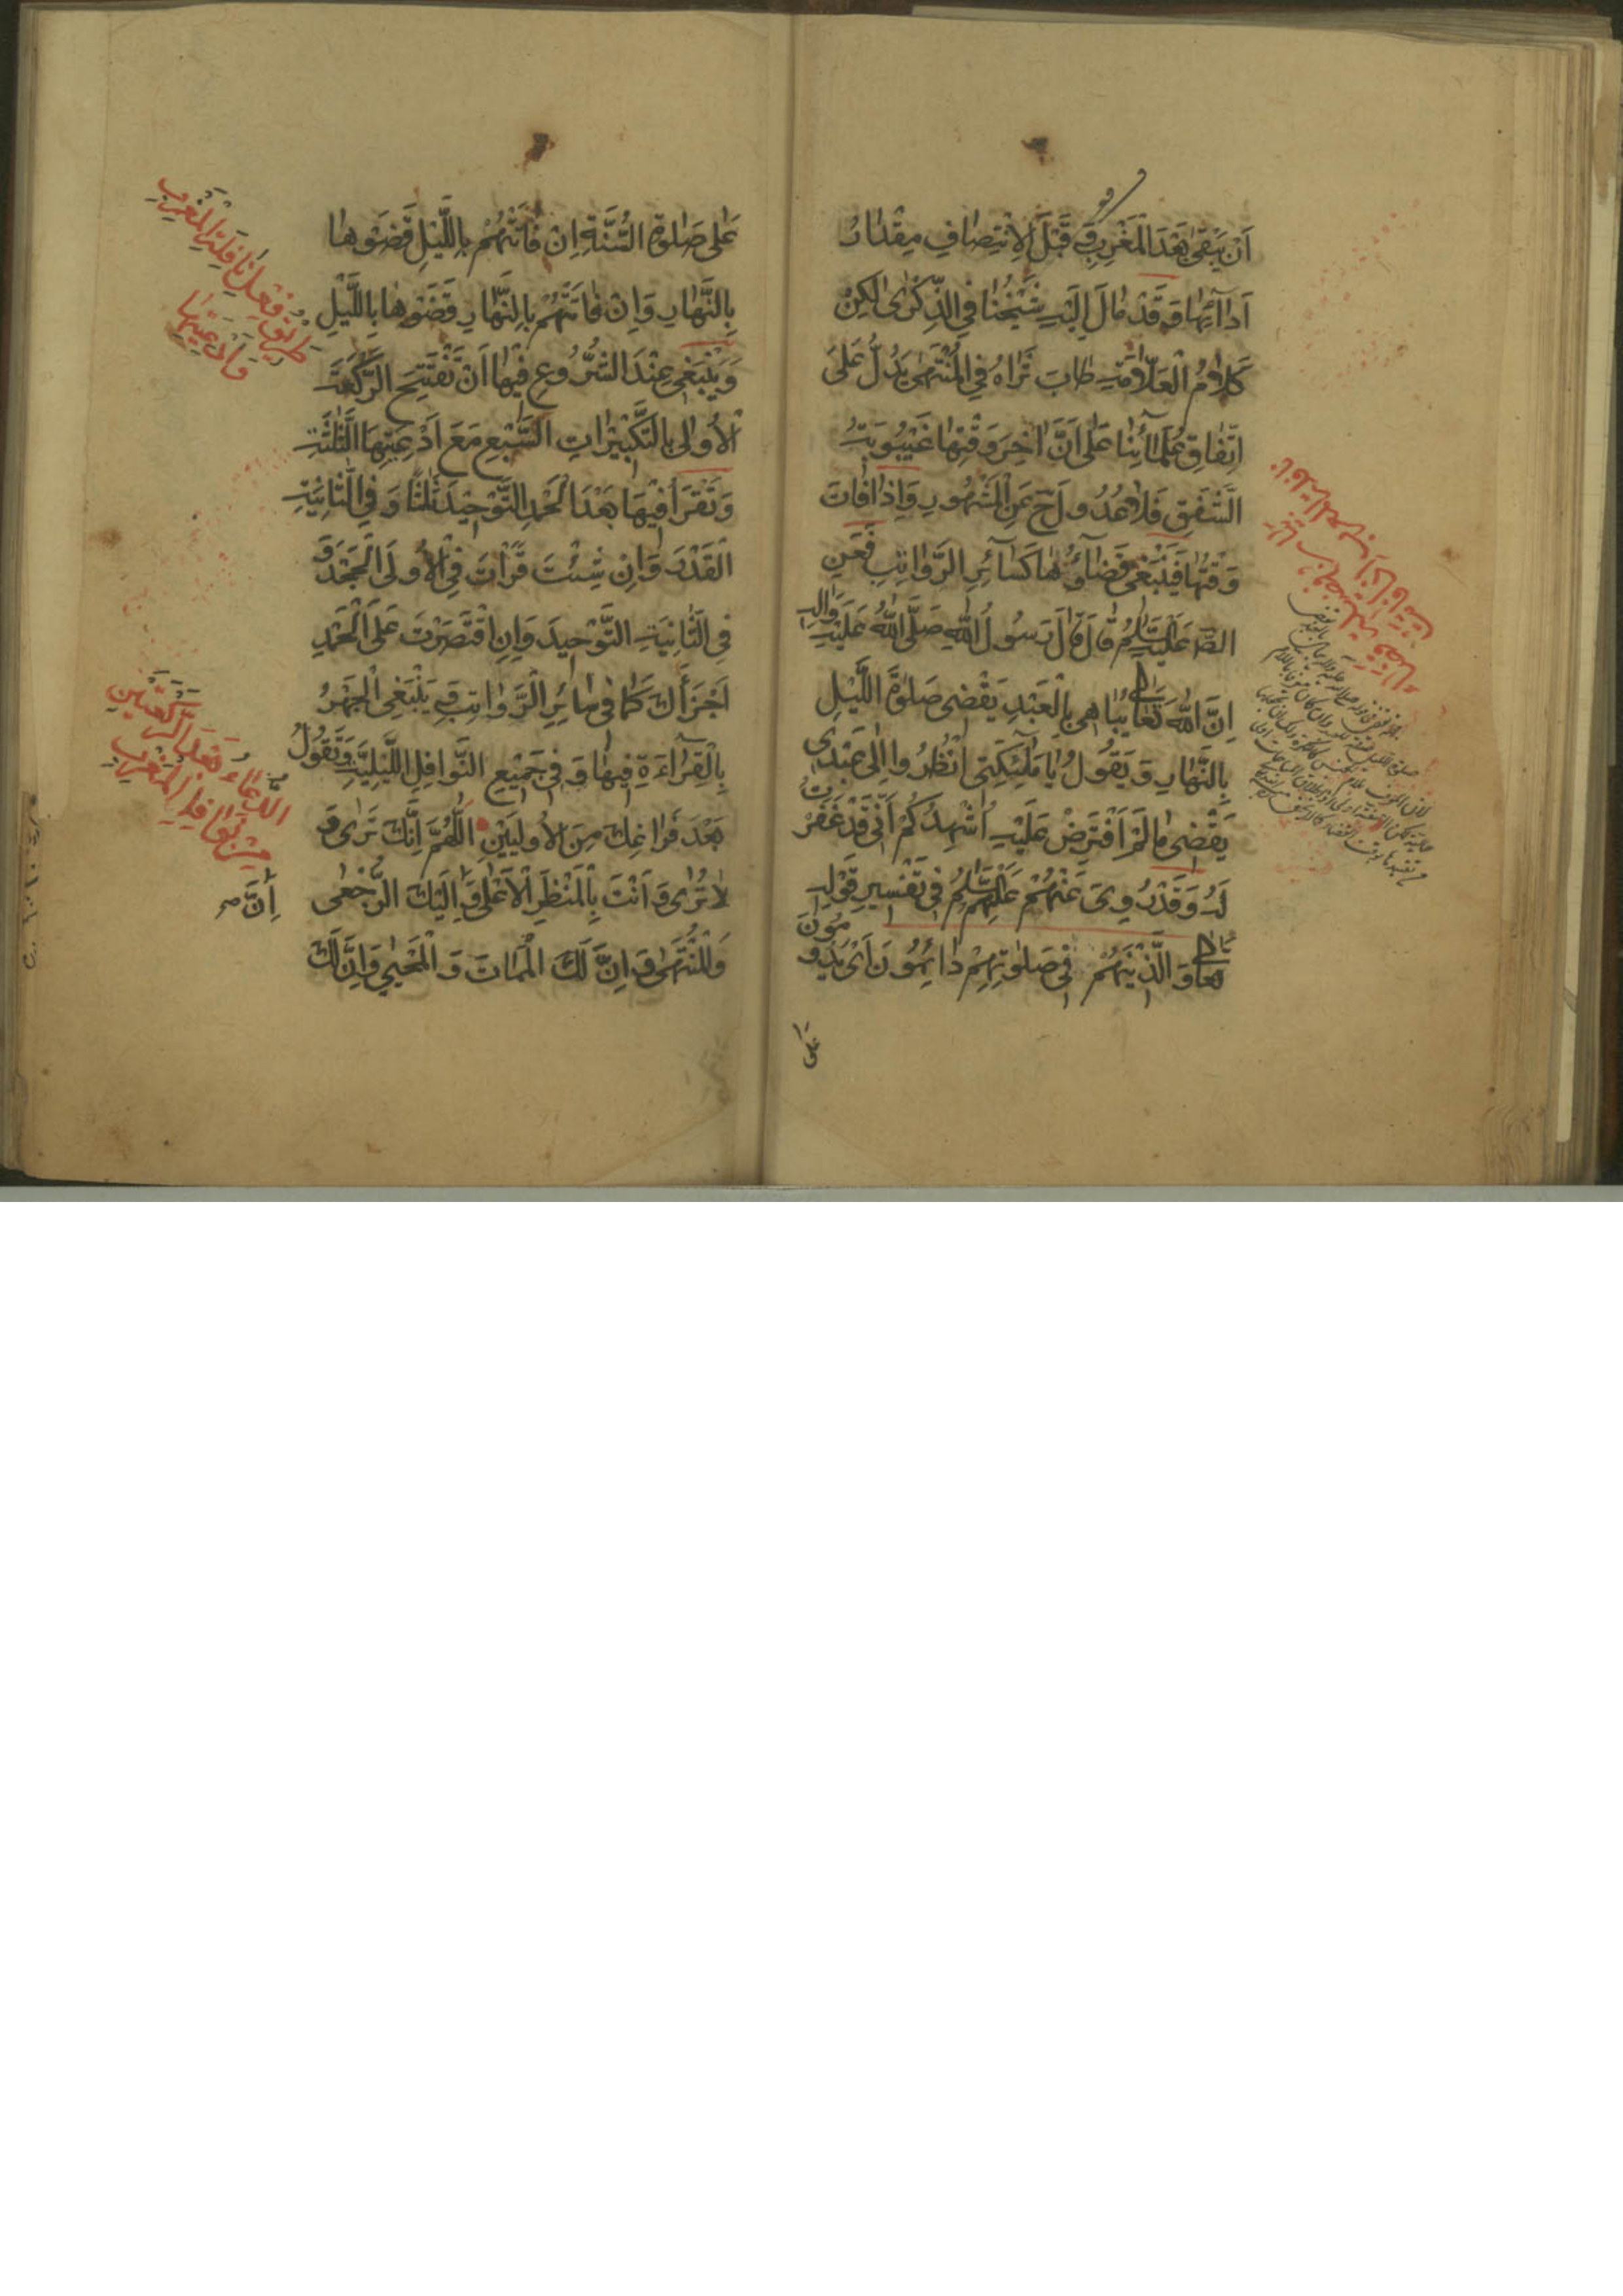 اَنْ يَبْقىٰ بَعْدَ الْمَغْرِبِ وَ قَبْلَ الْاِنْتِصَافِ مِقْدَارُ
اَدَآئِهَا وَ قَدْ مَالَ اِلَيْهِ شَيْخُنَا فِي الذِّكْرىٰ لٰكِنْ
كَلَامُ الْعَلَّامَةِ طَابَ ثَرَاهُ فِي الْمُنْتَهىٰ يَدُلُّ عَلىَ
اِتِّفَاقِ عُلَمَآئِنَا عَلىٰ اَنَّ اٰخِرَ وَقْتِهَا غَيْبُوبَةُ
الشَّفَقِ فَلَا عُدُولَ عَنِ الْمَشْهُورِ وَ اِذَا فَاتَ
وَقْتُهَا فَيَنْبَغِي قَضَآؤُهَا كَسَآئِرِ الرَّوَاتِبِ فَعَنِ
الصّ عَلَيْهِ السَّلٰمُ قَالَ قَالَ رَسُولُ اللهِ صَلَّى اللهُ عَلَيْهِ وَالِهِ
اِنَّ اللهَ تَعَالىٰ يُبَاهِي بِالْعَبْدِ يَقْضِي صَلوٰةَ اللَّيْلِ
بِالنَّهَارِ وَ يَقُولُ يَا مَلٰئِكَتِي اُنْظُرُوا اِلىٰ عَبْدِي
يَقْضِي مَا لَمْ اَفْتَرِضْ عَلَيْهِ اُشْهِدُكُمْ اَنِّي قَدْ غَفَرْتُ
لَهُ وَ قَدْ رُوِيَ عَنْهُمْ عَلَيْهِمُ السَّلٰمُ فِي تَفْسِيرِ قَوْلِهِ
تَعَالىٰ وَ الَّذِينَ هُمْ فِي صَلوٰتِهِمْ دَائِمُونَ اَيْ يَدُومُونَ
عَلىٰ
عَلىٰ صَلوٰةِ السُّنَّةِ اِنْ فَاتَتْهُمْ بِاللَّيْلِ قَضَوْهَا
بِالنَّهَارِ وَ اِنْ فَاتَتْهُمْ بِالنَّهَارِ قَضَوْهَا بِاللَّيْلِ
وَ يَنْبَغِي عِنْدَ الشُّرُوعِ فِيْهَا اَنْ تَفْتَتِحَ الرَّكْعَةَ
الْاُولىٰ بِالتَّكْبِيْرَاتِ السَّبْعِ مَعَ اَدْعِيَتِهَا الثَّلٰثَةِ
وَ تَقْرَأَ فِيْهَا بَعْدَ الْحَمْدِ التَّوْحِيْدَ ثَلٰثًا وَ فِي الثَّانِيَةِ
الْقَدْرَ وَ اِنْ شِئْتَ قَرَأْتَ فِي الْاُولىَ الْجَحْدَ وَ
فِي الثَّانِيَةِ التَّوْحِيدَ وَ اِنِ اقْتَصَرْتَ عَلَى الْحَمْدِ
اَجْزَأَكَ كَمَا فِي سَائِرِ الرَّوَاتِبِ وَ يَنْبَغِي الْجَهْرُ
بِالْقِرَاءَةِ فِيهَا وَ فِي جَمِيْعِ النَّوَافِلِ اللَّيْلِيَّةِ وَ تَقُولُ
بَعْدَ فَرَاغِكَ مِنَ الْاُولَيَيْنِ اَللّٰهُمَّ اِنَّكَ تَرىٰ وَ
لَا تُرىٰ وَ اَنْتَ بِالْمَنْظَرِ الْاَعْلىٰ وَ اِلَيْكَ الرُّجْعىٰ
وَ الْمُنْتَهىٰ وَ اِنَّ لَكَ الْمَمَاتَ وَ الْمَحْيىٰ وَ اِنَّ لَكَ
طَرِيْقُ فِعْلِ نَافِلَةِ الْمَغْرِبِ
وَ اَدْعِيَتِهَا
الدُّعَاءُ بَعْدَ الرَّكْعَتَيْنِ
مِنْ نَوَافِلِ الْمَغْرِبِ
اِنَّ